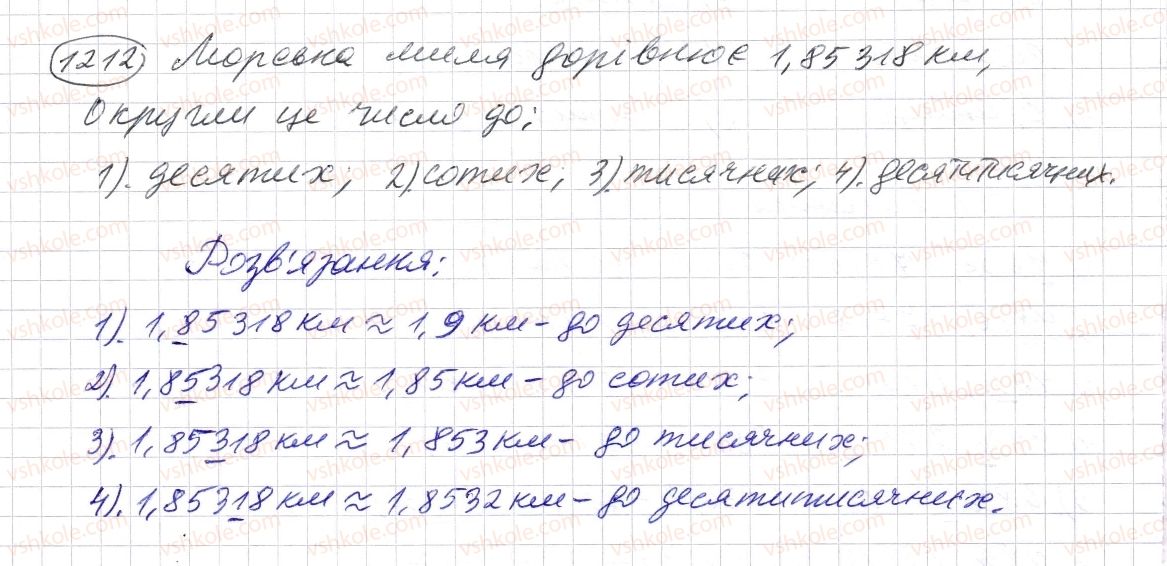 1212 Морська миля дорівнює 1,85318 км,
Округли це число до:
1). десятих; 2). сотих; 3). тисячних; 4). десятитисячних.
Розв'язання:
1). 1,85318 км ≈ 1,9 км – до десятих;
2). 1,85318 км ≈ 1,85 км – до сотих;
3). 1,85318 км ≈ 1,853 км – до тисячних;
4). 1,85318 км ≈ 1,8532 км – до десятитисячних.
vshkole.com